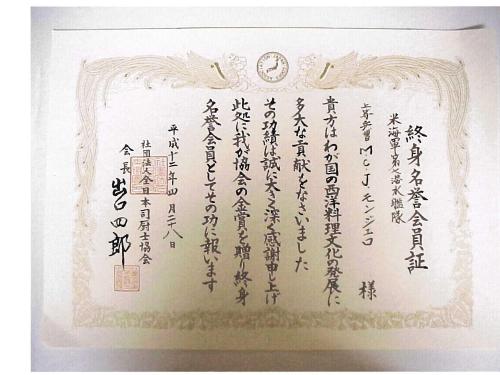 終身名誉会員証
米海軍第七潜水艦隊
MCJ.モンジェロ 様
貴方はわが国の西洋料理文化の発展に
多大な貢献をなさいました
その功績は誠に大きく深く感謝申し上げ
此処に我が協会の金賞を贈り終身
名誉会員としてその功に報います
平成十二年四月二八日
社団法人全日本司厨士協会
会長 出口四郎